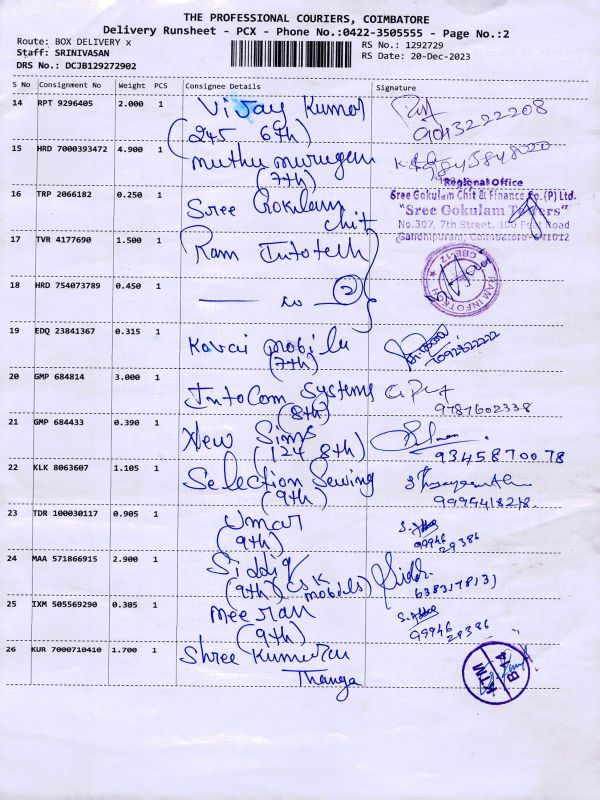 THE PROFESSIONAL COURIERS, COIMBATORE
Delivery Runsheet - PCX - Phone No.:0422-3505555 - Page No.:2
Route: BOX DELIVERY x
RS No.: 1292729
Staff: SRINIVASAN
RS Date: 20-Dec-2023
DRS No.: DCJB129272902
S No Consignment No Weight PCS Consignee Details Signature
14 RPT 9296405 2.000 1 Vijay Kumar
(245 6th) 9043222208
15 HRD 7000393472 4.900 1 Muthu murugan
(7th)
16 TRP 2066182 0.250 1 Sree Gokulam
chit
Regional Office
Sree Gokulam Chit & Finance Co.(P) Ltd.
"Sree Gokulam Towers"
No.307, 7th Street, 100 Feet Road
Gandhipuram, Coimbatore - 641012
17 TVR 4177690 1.500 1 Ram Infotech
RAM INFOTECH CBE-12
18 HRD 754073789 0.450 1 — do — 2
19 EDQ 23841367 0.315 1 Kovai mobile
(7th)
20 GMP 684814 3.000 1 InfoCom Systems
(8th) 9787602338
21 GMP 684433 0.390 1 New Sims
(124 8th) 9345870078
22 KLK 8063607 1.105 1 Selection Sewing
(9th)
23 TDR 100030117 0.905 1 Umar
(9th) 99946
29386
24 MAA 571866915 2.900 1 Siddiq
(9th) (CSK mobiles) Siddi
6383178131
25 IXM 505569290 0.305 1 Meeran
(9th) 99946
29386
26 KUR 7000710410 1.700 1 Shree Kumaran
Thanga
KTM
B4